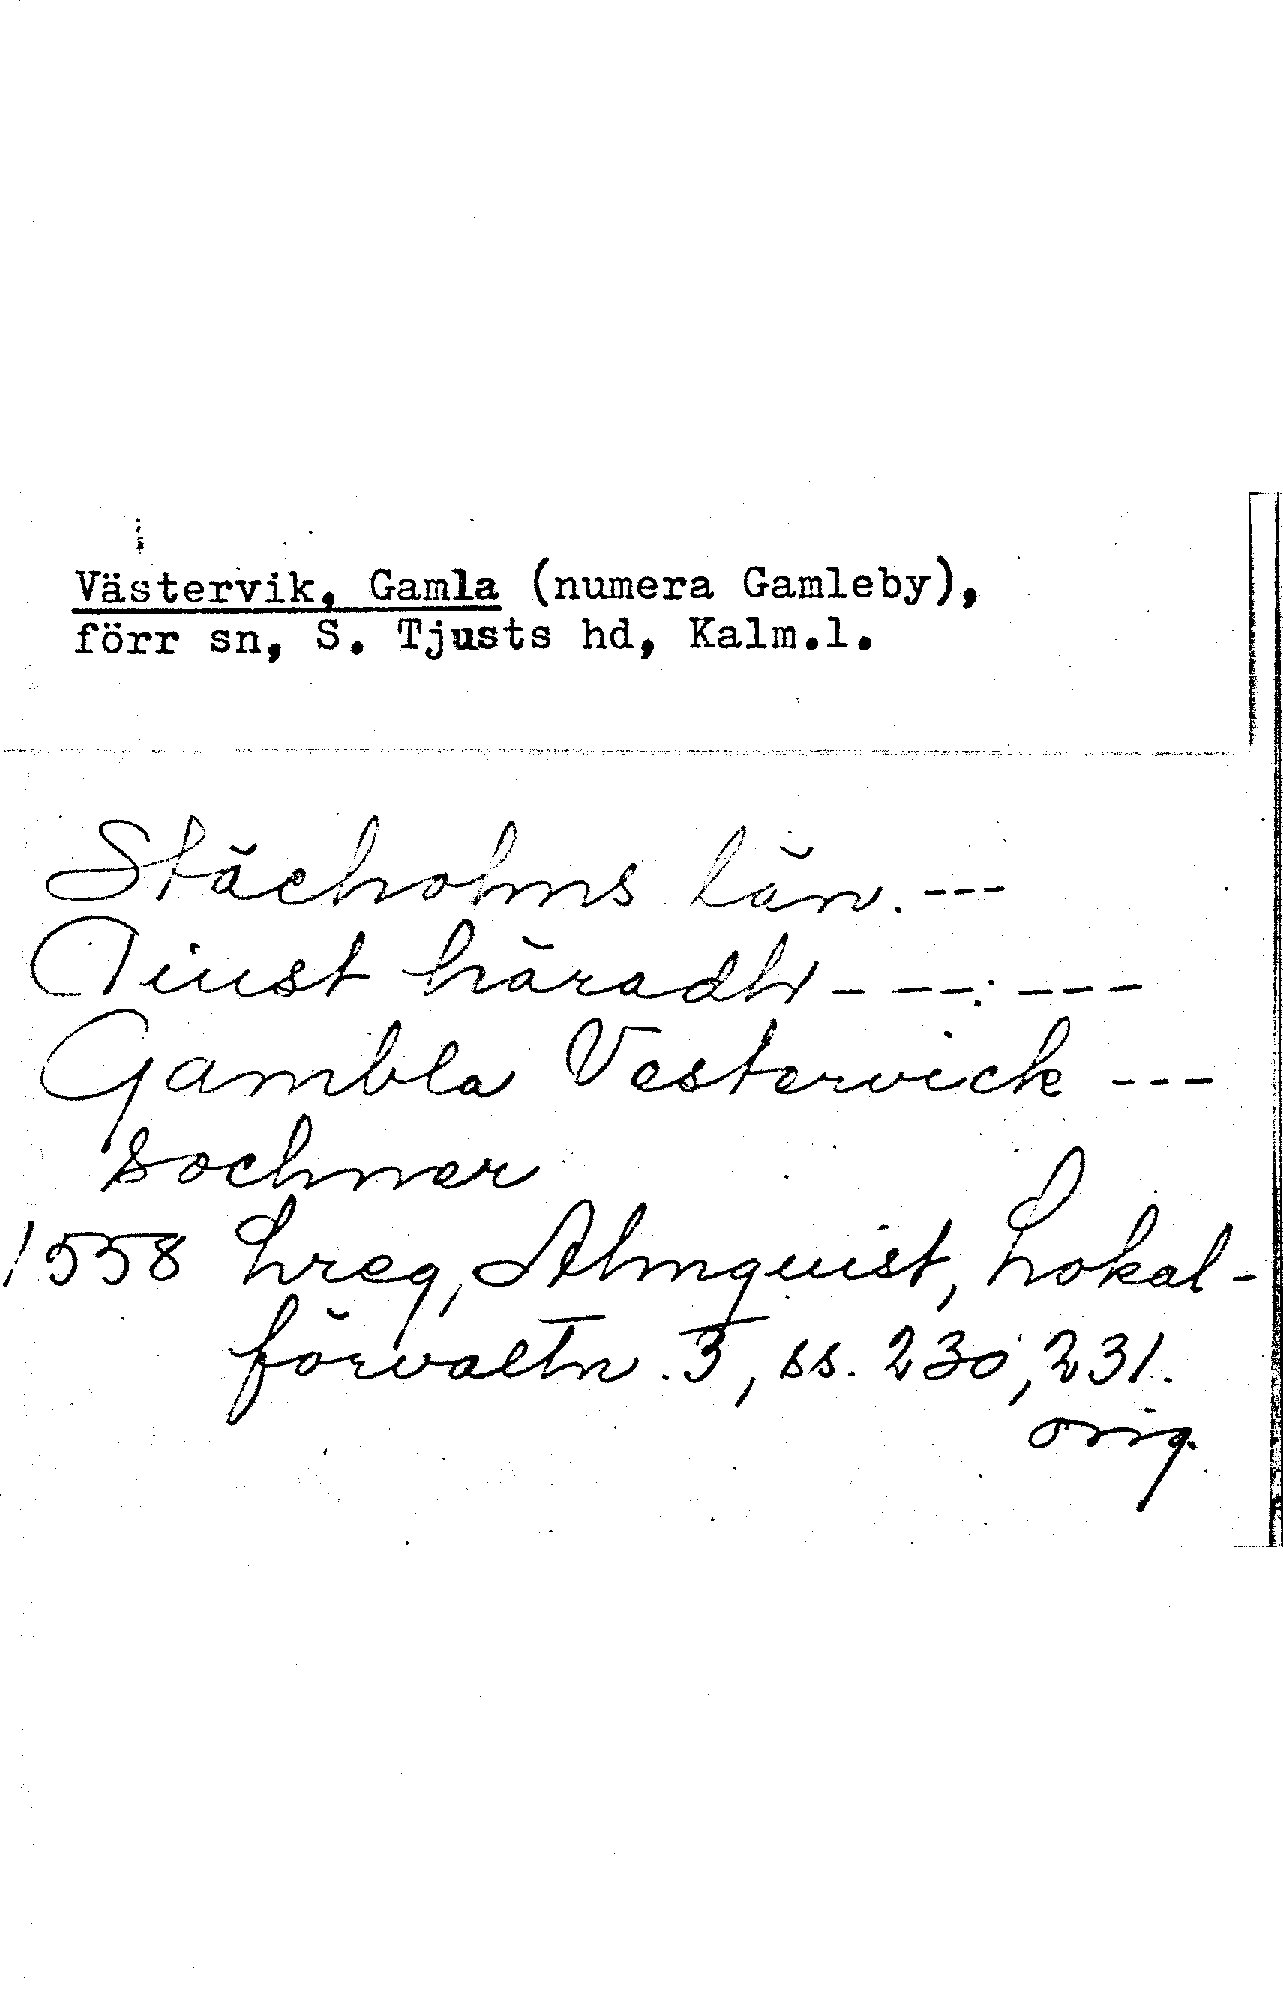 Västervik, Gamla (numera Gamleby),
förr sn, S. Tjusts hd, Kalm.l.
Stächolms län. ---
Tiust häradh - ---: ---
Gambla Vestervick ---
sochner
1558 hreg, Almquist, Lokal-
förvaltn. 3, ss. 230, 231.
orig.